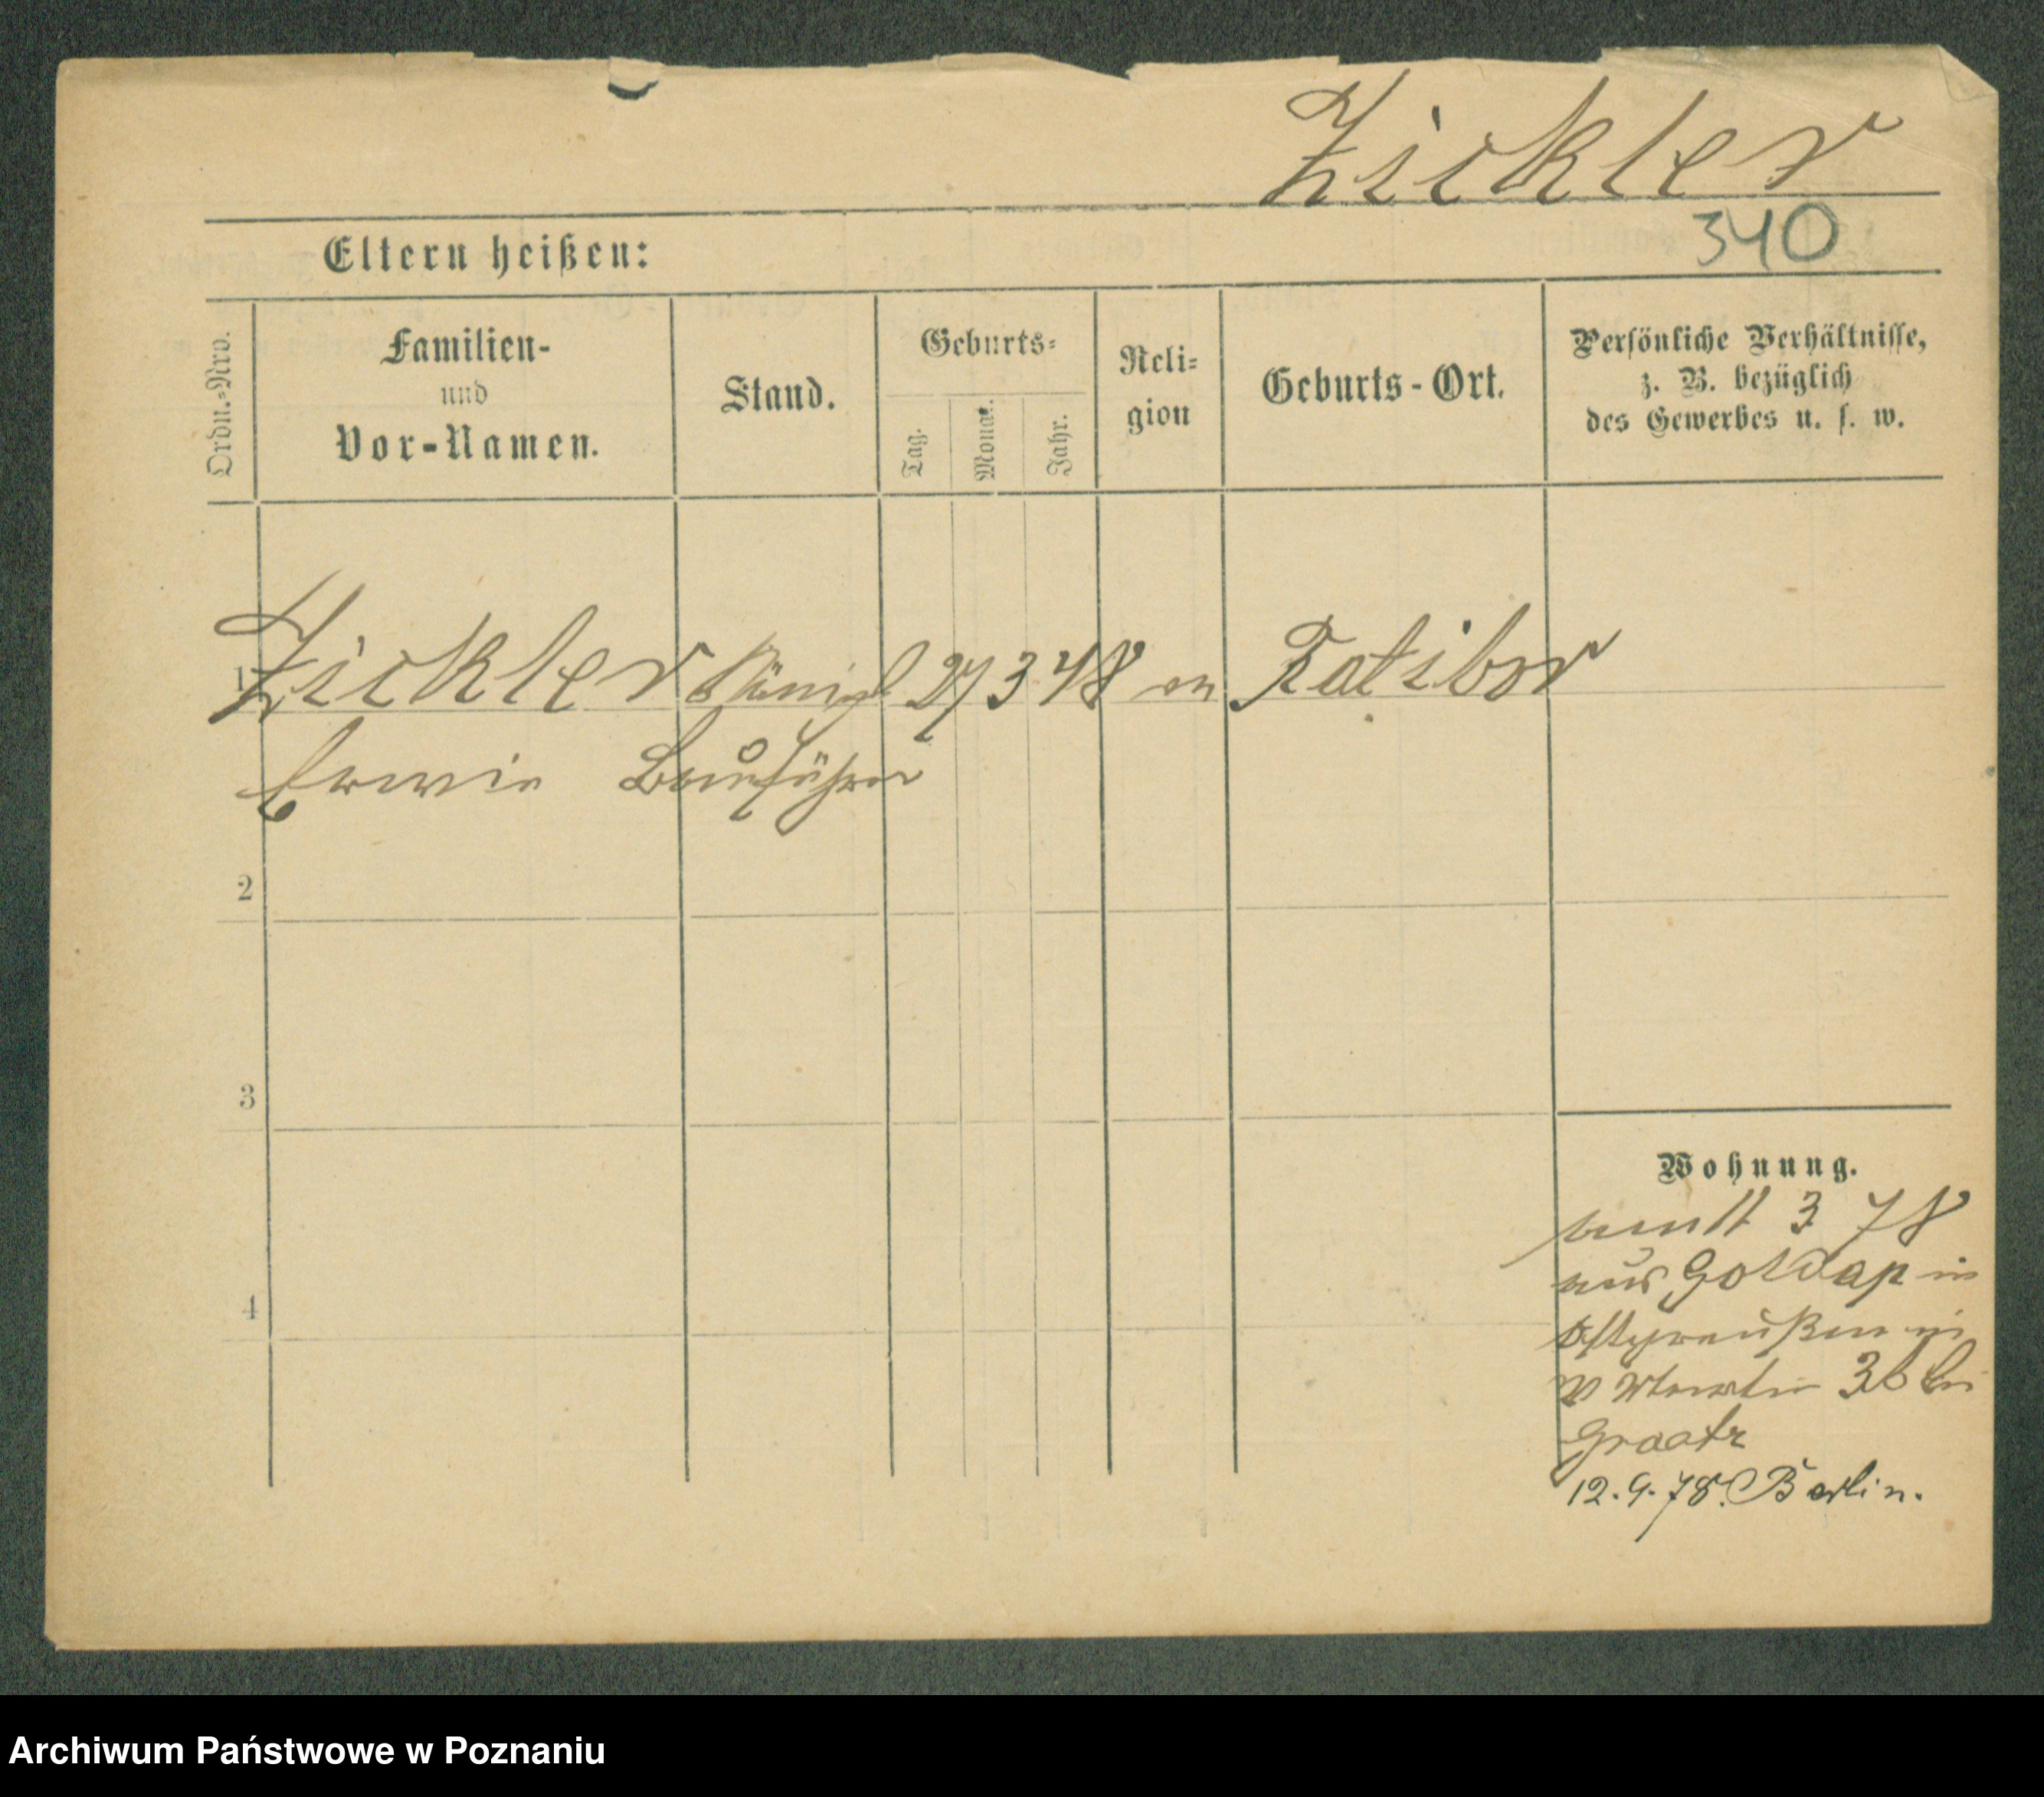 Zickler
340
Eltern heißen:
Ordn.-Nro.
Familien-
und
Vor-Namen.
Stand.
Geburts-
Tag.
Monat.
Jahr.
Reli-
gion
Geburts-Ort.
Persönliche Verhältnisse,
z. B. bezüglich
des Gewerbes u. s. w.
1 Zickler Königl 27 3 48 ev Ratibor
Erwin Bauführer
2
3
4
Wohnung.
3 78
aus Goldap in
Ostpreußen in
W 36 bei
12.9.78. Berlin.
Archiwum Państwowe w Poznaniu